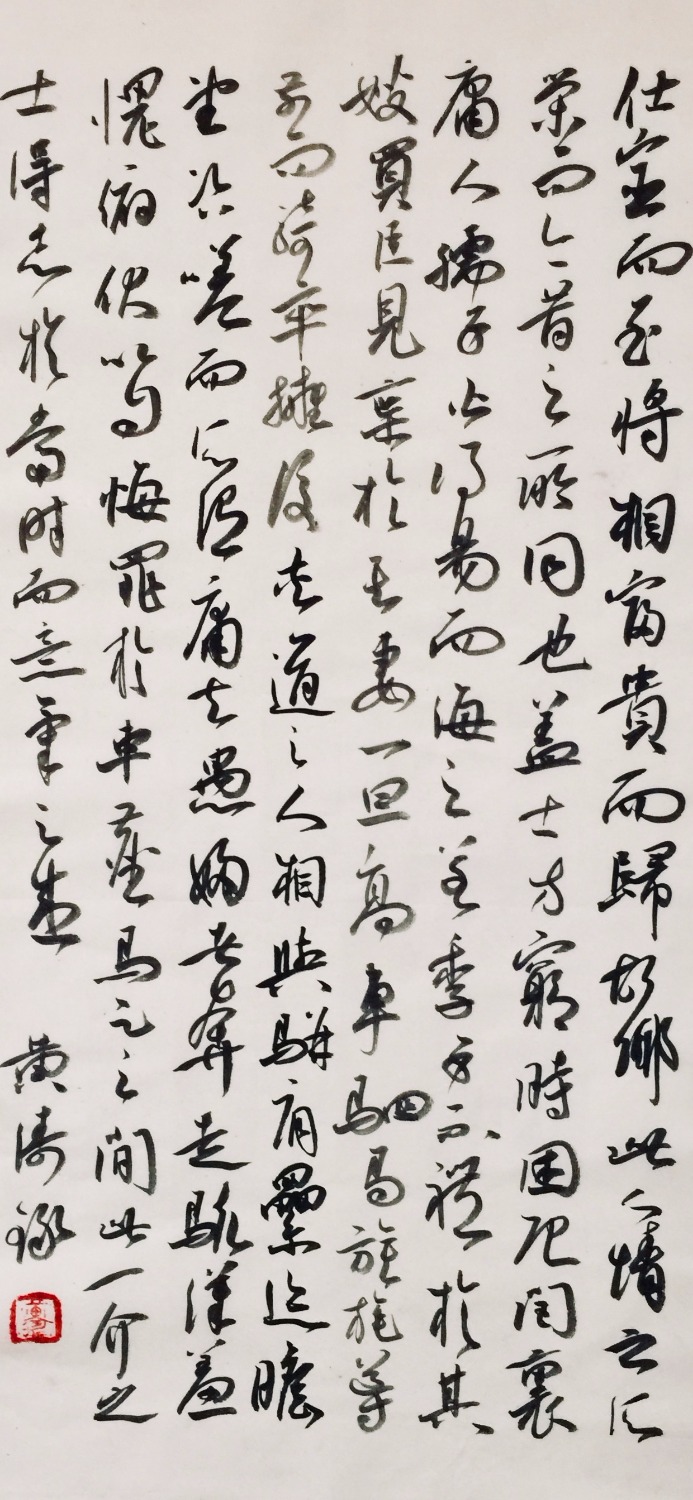 仕宦而至將相富貴而歸故鄉此人情之所
榮而今昔之所同也蓋士方窮時困阨閭裏
庸人孺子皆得易而侮之若季子不禮於其
嫂買臣見棄於其妻一旦高車駟馬旗旄導
前而騎卒擁後夾道之人相與駢肩纍迹瞻
望咨嗟而所謂庸夫愚婦者奔走駭汗羞
愧俯伏以自悔罪於車塵馬足之間此一介之
士得志於當時而意氣之盛 黃濤錄